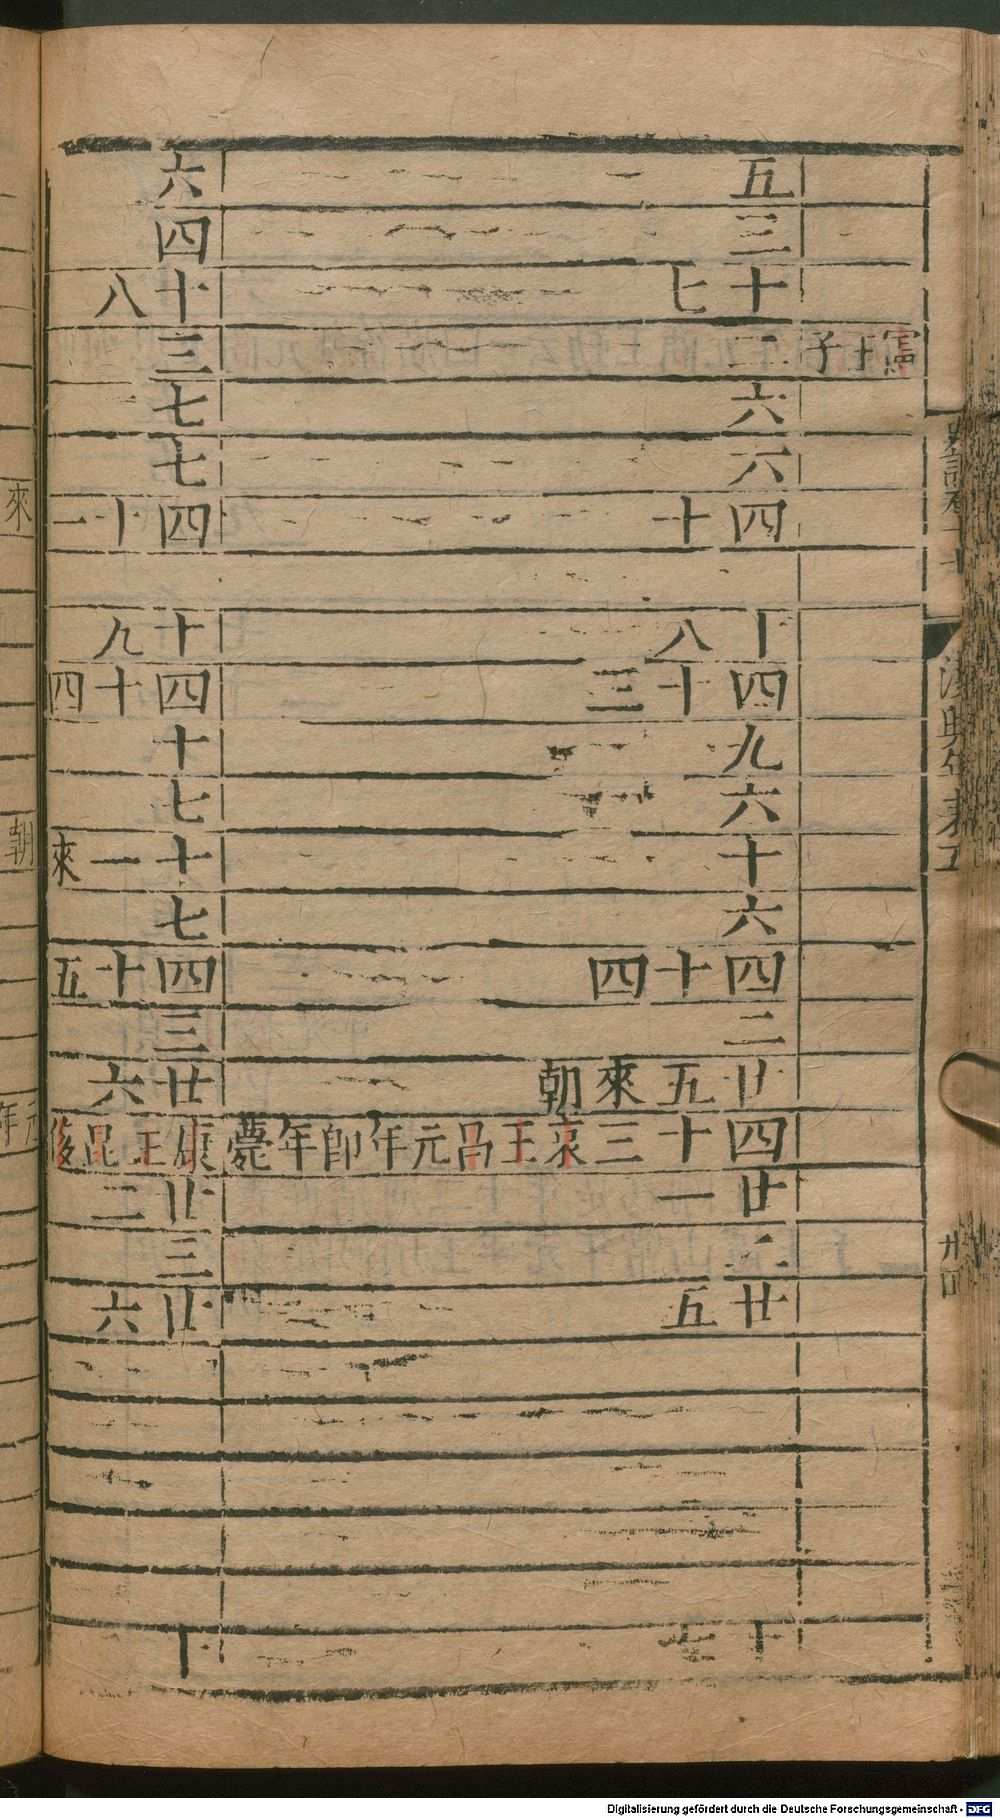 漢興年表五
卅四
憲王子
五
三
十七
二
六
六
四十
十八
四十三
九
六
十
六
四十四
二
廿五來朝
四十三哀王昌元年即年薨
廿一
二
廿五
六
四
十八
三
七
七
四十一
十九
四十四
十
七
十一來
七
四十五
三
廿六
康王昆侈
廿二
三
廿六
來
朝
元年
Digitalisierung gefördert durch die Deutsche Forschungsgemeinschaft - DFG